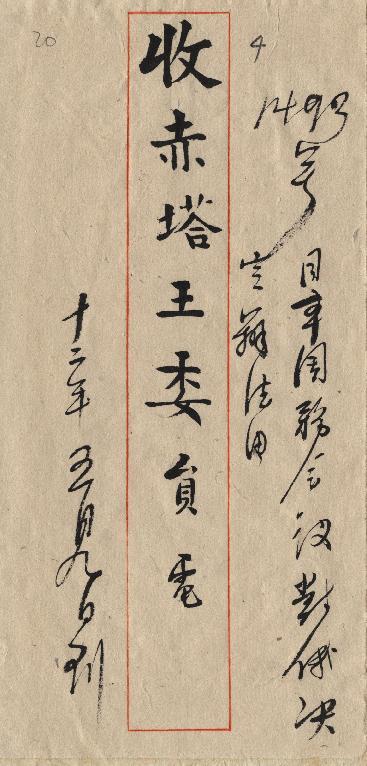 4
1493号
目本国務会议對俄决
定
收赤塔王委員電
十二年五月九日到
20